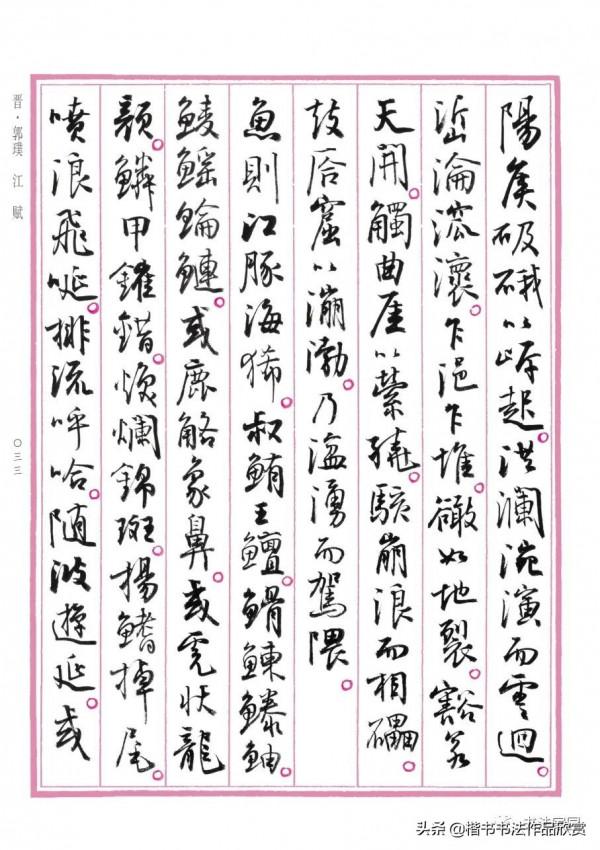 陽侯砐硪以岸起。洪瀾涴演而雲迴。
峾淪溛瀤。乍浥乍堆。豃如地裂。豁若
天開。觸曲厓以縈繞。駭崩浪而相礧。
鼓唇窟以漰渤。乃湓湧而駕隈。
魚則江豚海狶。叔鮪王鱣。䱻鰊鰧鮋。
鯪鰩鯩鰱。或鹿觡象鼻。或虎狀龍
顏。鱗甲鏙錯。煥爛錦斑。揚鰭掉尾。
噴浪飛唌。排流呼哈。隨波遊延。或
晋·郭璞 江賦
〇三三
头条 @楷书书法作品欣赏